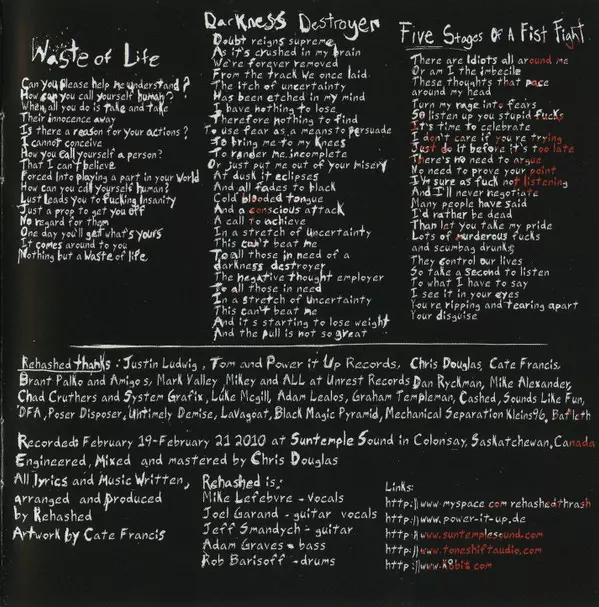 Waste of Life
Can you please help me understand?
How can you call yourself human?
When all you do is take and take
Their innocence away
Is there a reason for your actions?
I cannot conceive
How you call yourself a person?
That I can't believe
Forced Into playing a part in your World
How can you call yourself human?
Lust leads you to fucking Insanity
Just a prop to get you off
No regard for them
One day you'll get what's yours
It comes around to you
Nothing but a Waste of life
Darkness Destroyer
Doubt reigns supreme
As it's crushed in my brain
We're forever removed
From the track We once laid
The itch of uncertainty
Has been etched in my mind
I have nothing to lose
Therefore nothing to find
To use fear as a means to persuade
To bring me to my Knees
To render me incomplete
Or just put me out of your misery
At dusk it eclipses
And all fades to black
Cold blooded tongue
And a conscious attack
A call to achieve
In a stretch of Uncertainty
This can't beat me
To all those in need of a
darkness destroyer
The negative thought employer
To all those in need
In a stretch of Uncertainty
This can't beat me
And it's starting to lose weight
And the pull is not so great
Five Stages Of A Fist Fight
There are Idiots all around me
Or am I the imbecile
These thoughts that pace
around my head
Turn my rage into fears
So listen up you stupid fucks
It's time to celebrate
I don't care if you're trying
Just do it before it's too late
There's no need to argue
No need to prove your point
I'm sure as fuck not listening
And I'll never negotiate
Many people have said
I'd rather be dead
Than let you take my pride
Lots of murderous fucks
and scumbag drunks
They control our lives
So take a second to listen
To what I have to say
I see it in your eyes
You're ripping and tearing apart
Your disguise
Rehashed thanks: Justin Ludwig, Tom and Power it Up Records, Chris Douglas, Cate Francis,
Brant Palko and Amigos, Mark Valley, Mikey and ALL at Unrest Records Dan Ryckman, Mike Alexander,
Chad Cruthers and System Grafix, Luke Mcgill, Adam Lealos, Graham Templeman, Cashed, Sounds Like Fun,
DFA, Poser Disposer, Untimely Demise, Lavagoat, Black Magic Pyramid, Mechanical Separation Kleins96, Batleth
Recorded: February 19-February 21 2010 at Suntemple Sound in Colonsay, Saskatchewan, Canada
Engineered, Mixed and mastered by Chris Douglas
All lyrics and Music Written,
arranged and produced
by Rehashed
Artwork by Cate Francis
Rehashed is:
Mike Lefebvre - vocals
Joel Garand - guitar vocals
Jeff Smandych - guitar
Adam Graves - bass
Rob Barisoff - drums
Links:
http://www.myspace.com/rehashedthrash
http://www.power-it-up.de
http://www.suntemplesound.com
http://www.toneshiftaudio.com
http://www.k8bit.com